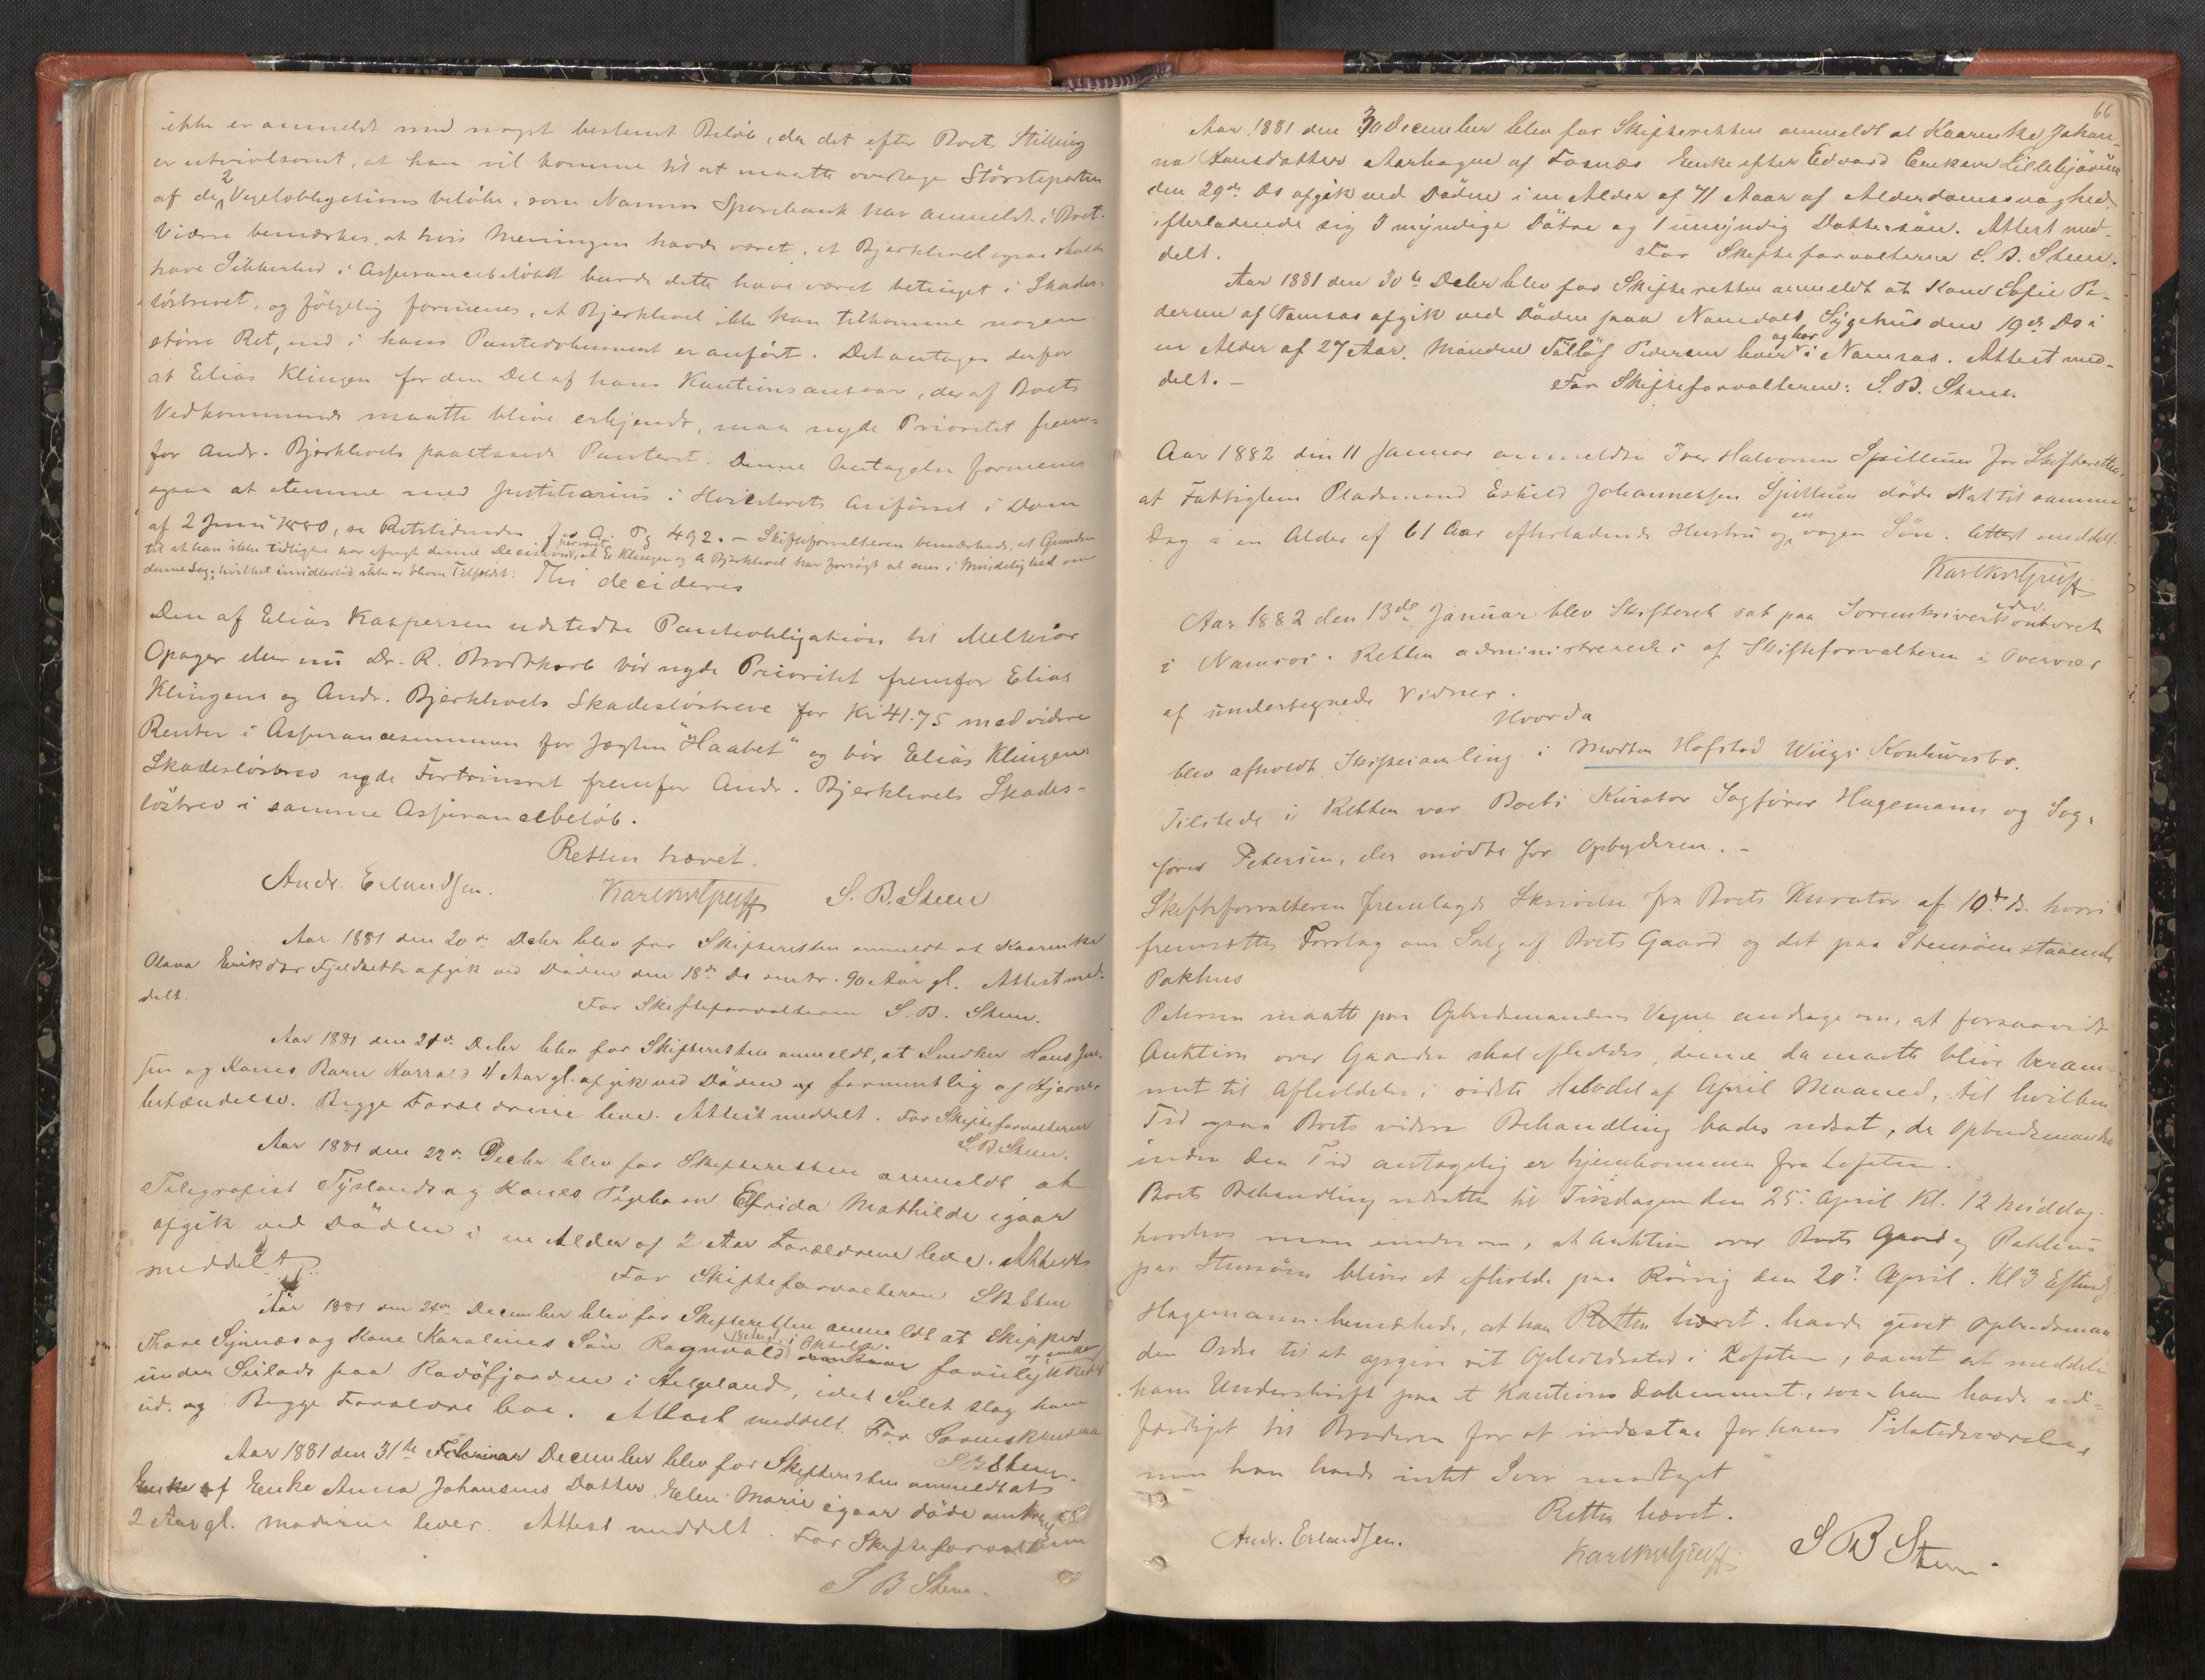 ikke er anmeldt med noget bestemt Beløb, da det efter Boets Stilling
er utvivlsomt, at han vil komme til at maatte overtage Størsteparten
af de 2 Vexelobligationers beløbe, som Namsos Sparebank har anmeldt i Boet.
Videre bemærkes, at hvis Meningen havde været, at Bjørkhovel ogsaa skulde
have Sikkerhed i Assurancebeløbet burde dette have været betinget i Skades-
løsbrevet, og følgelig formenes, at Bjerkhoel ikke kan tilkomme nogen
større Ret, end i hans Pantedokument er anført. Det antages derfor
at Elias Klingen for den Del af hans Kautionsansvar, der af Boets
Vedkommende maatte blive erkjendt, maa nyde Prioritet frem-
for Andr. Bjørkhoels paastaaede Panteret. Denne Antagelse formenes
ogsaa at stemme med Justitiarius i Høiesterets Anførsel i Dom
af 2 Juni 1880, se Retstidende f. s. A. Pg 492. — Skifteforvalteren bemærkede, at Grunden
til at han ikke tidligere har afsagt denne Decision, at E. Klingen og A Bjerkhoel har forsøgt at enes i Mindelighed om
denne Sag; hvilket imidlertid ikke er bleven Tilfældet: Thi decideres
Den af Elias Kaspersen udstedte Panteobligation til Melkior
Opager eller nu Dr. R. Brodtkorb bør nyde Prioritet fremfor Elias
Klingens og Andr. Bjerkhoels Skadesløsbreve for Kr 41.75 med videre
Renter i Assurancesummen for Jægten "Haabet" og bør Elias Klingens
Skadesløsbrev nyde Fortrinsret fremfor Andr. Bjerkhoels Skades-
løsbrev i samme Assurancebeløb.
Retten hævet.
Andr. Erlandsen. S. B. Steen
Aar 1881 den 20de Decbr blev for Skifteretten anmeldt at Kaarenke
Olava Eriksdtr Fjeldsette afgik ved Døden den 18de Ds omtr. 90 Aar gl. Attest med-
delt. For Skifteforvalteren S. B. Steen.
Aar 1881 den 21de Decbr blev for Skifteretten anmeldt, at Snedker Hans Jen-
sen og Kones Barn Harrald 4 Aar gl. afgik ved Døden af formentlig af Hjerne-
betændelse. Begge Forældrene leve. Attest meddelt. For Skifteforvalteren
S. B. Steen.
Aar 1881 den 22de Decbr blev for Skifteretten anmeldt at
Telegrafist Tyslands og Kones Pigebarn Elfrida Mathilde igaar
afgik ved Døden i en Alder af 2 Aar Forældrene leve. Attest
meddelt
For Skifteforvalteren SB Steen
Aar 1881 den 24de December blev for Skifteretten anmeldt at Skipper
Thore Sjønæs og Kone Karolines Søn Ragnvald forulykkede
under Seilads paa Rødøfjorden i Helgeland, idet Seilet slog ham
ud. og Begge Forældre leve. Attest meddelt. For Sorenskriveren
S B Steen.
Aar 1881 den 31te Februar December blev for Skifteretten anmeldt at
Enke af Enke Anna Johansens Datter Elen Marie igaar døde omtrent
2 Aar gl. Moderen lever. Attest meddelt. For Skifteforvalteren
S B Steen.
66
Aar 1881 den 30 December blev for Skifteretten anmeldt at Kaarenke Johan-
na Hansdatter Aarhagen af Fosnæs Enke efter Edvard Eriksen Lillebjøruen
den 29de Ds afgik ved Døden i en Alder af 71 Aaar af Alderdomssvaghed
efterladende sig 3 myndige Døtre og 1 umyndig Dattersøn. Attest med-
delt. For Skifteforvalteren S. B. Steen.
Aar 1881 den 30te Decbr blev for Skifteretten anmeldt at Kone Sofie Pe-
dersen af Namsos afgik ved Døden paa Namdals Sygehus den 19de Ds i
en Alder af 27 Aar. Manden Tollof Pedersen lever og bor i Namsos. Attest med-
delt. — For Skifteforvalteren: S. B. Steen.
Aar 1882 den 11 Januar anmeldte Iver Halvorsen Spillum for Skifteretten,
at Fattiglem Pladsmand Eskild Johannessen Spillum døde Nat til samme
Dag i en Alder af 61 Aar efterladende Hustru og en voxen Søn. Attest meddelt.
Aar 1882 den 13de Januar blev Skifteret sat paa Sorenskriverkontoret
i Namsos. Retten administreredes af Skifteforvalteren i Overvær
af undertegnede Vidner.
Hvorda
blev afholdt Skiftesamling i Morten Hofstad Wiigs Konkursbo.
Tilstede i Retten var Boets Kurator Sagfører Hagemann og Sag-
fører Petersen, der mødte for Opbyderen. —
Skifteforvalteren fremlagde Skrivelse fra Boets Kurator af 10de ds. hvori
fremsættes Forslag om Salg af Boets Gaard og det paa Stensøen staaende
Pakhus
Petersen maatte paa Opbudsmandens Vegne andrage om, at forsaavidt
Auktion over Gaarden skal afholdes, denne da maatte blive beram-
met til Afholdelse i sidste Halvdel af April Maaned, til hvilken
Tid ogsaa Boets videre Behandling bades udsat, da Opbudsmanden
inden den Tid antagelig er hjemkommen fra Lofoten.
Boets Behandling udsattes til Tirsdagen den 25. April Kl. 12 Middag.
hvorhos man enedes om, at Auktion over Boets Gaard og Pakhus
paa Stensøen bliver at afholde paa Rørvig den 20. April. Kl 3 Efterm.
Hagemann bemærkede, at han Retten hævet. havde givet Opbudsman-
den Ordre til at opgive sit Opholdssted i Lofoten, samt at meddele
ham Underskrift paa et Kautions Dokument, som han havde ud-
færdiget til Broderen for at indestaa for hans Tilstedeværelse,
men han havde intet Svar modtaget
Retten hævet.
Andr. Erlandsen. S B Steen.